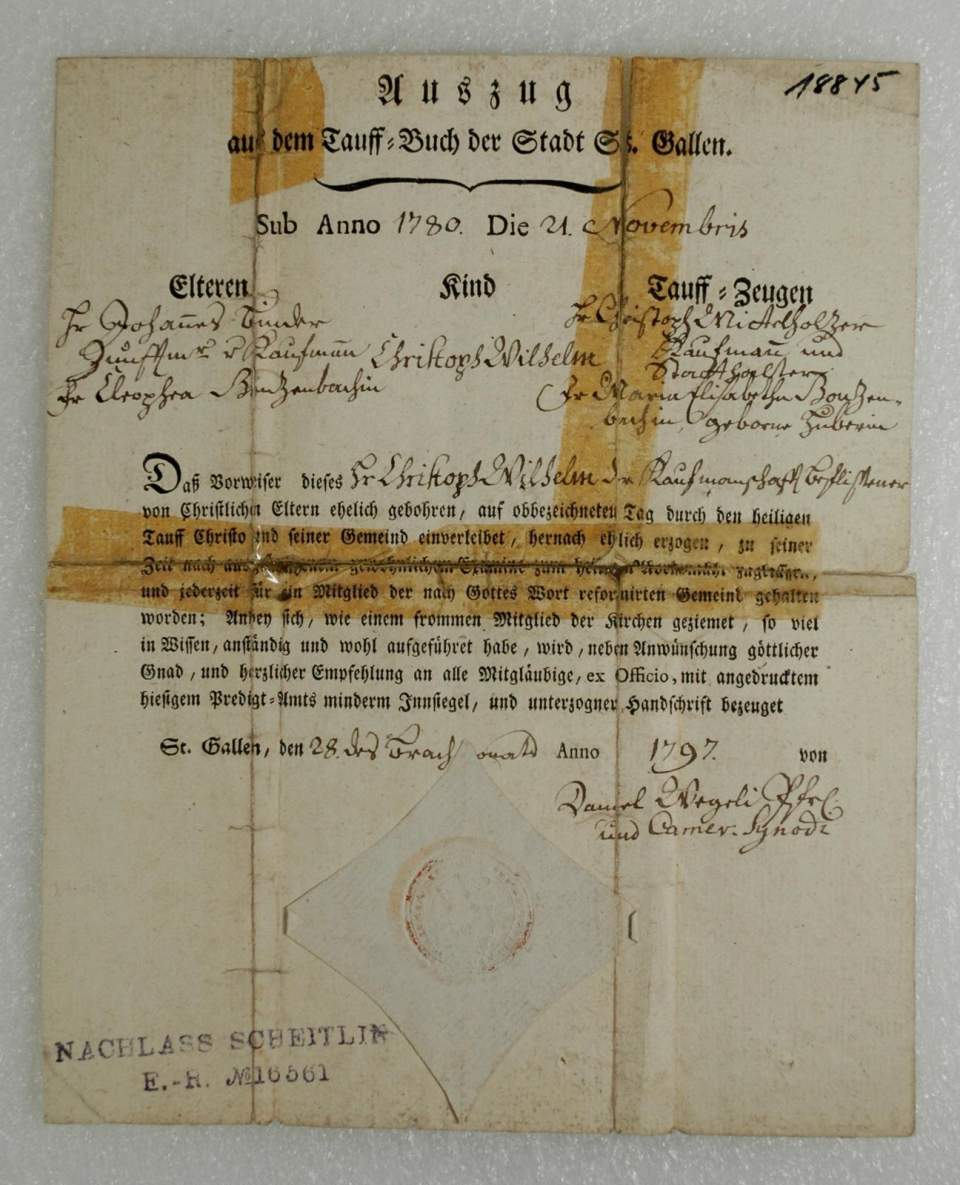 18845
Auszug
aus dem Tauff-Buch der Stadt St. Gallen.
Sub Anno 1780. Die 21. Novembris
Elteren Kind Tauff-Zeugen
Hr Johannes Binder
Zunfftmr. u Kaufmann
Fr Cleophea
Christoph Wilhelm
Hr Christoph
Kaufmann und
Fr Maria Elisabetha
geborne Zuberin
Daß Vorweiser dieses Hr Christoph Wilhelm der Kaufmanschafft beflissener
von Christlichen Eltern ehelich gebohren, auf obbezeichneten Tag durch den heiligen
Tauff Christo und seiner Gemeind einverleibet, hernach ehrlich erzogen, zu seiner
Zeit nach gewöhnlichem Examine zum heiligen zugelassen,
und jederzeit für ein Mitglied der nach Gottes Wort reformirten Gemeind gehalten
worden; Anbey sich, wie einem frommen Mitglied der Kirchen geziemet, so viel
in Wissen, anständig und wohl aufgeführet habe, wird, neben Anwünschung göttlicher
Gnad, und herzlicher Empfehlung an alle Mitgläubige, ex Officio, mit angedrucktem
hiesigem Predigt-Amts minderm Innsiegel, und unterzogner Handschrift bezeuget
St. Gallen, den 28. des Brachmonats Anno 1797. von
Daniel Wegeli Pfr
und Camer. Synodi
NACHLASS SCHEITLIN
E.-R. №16561